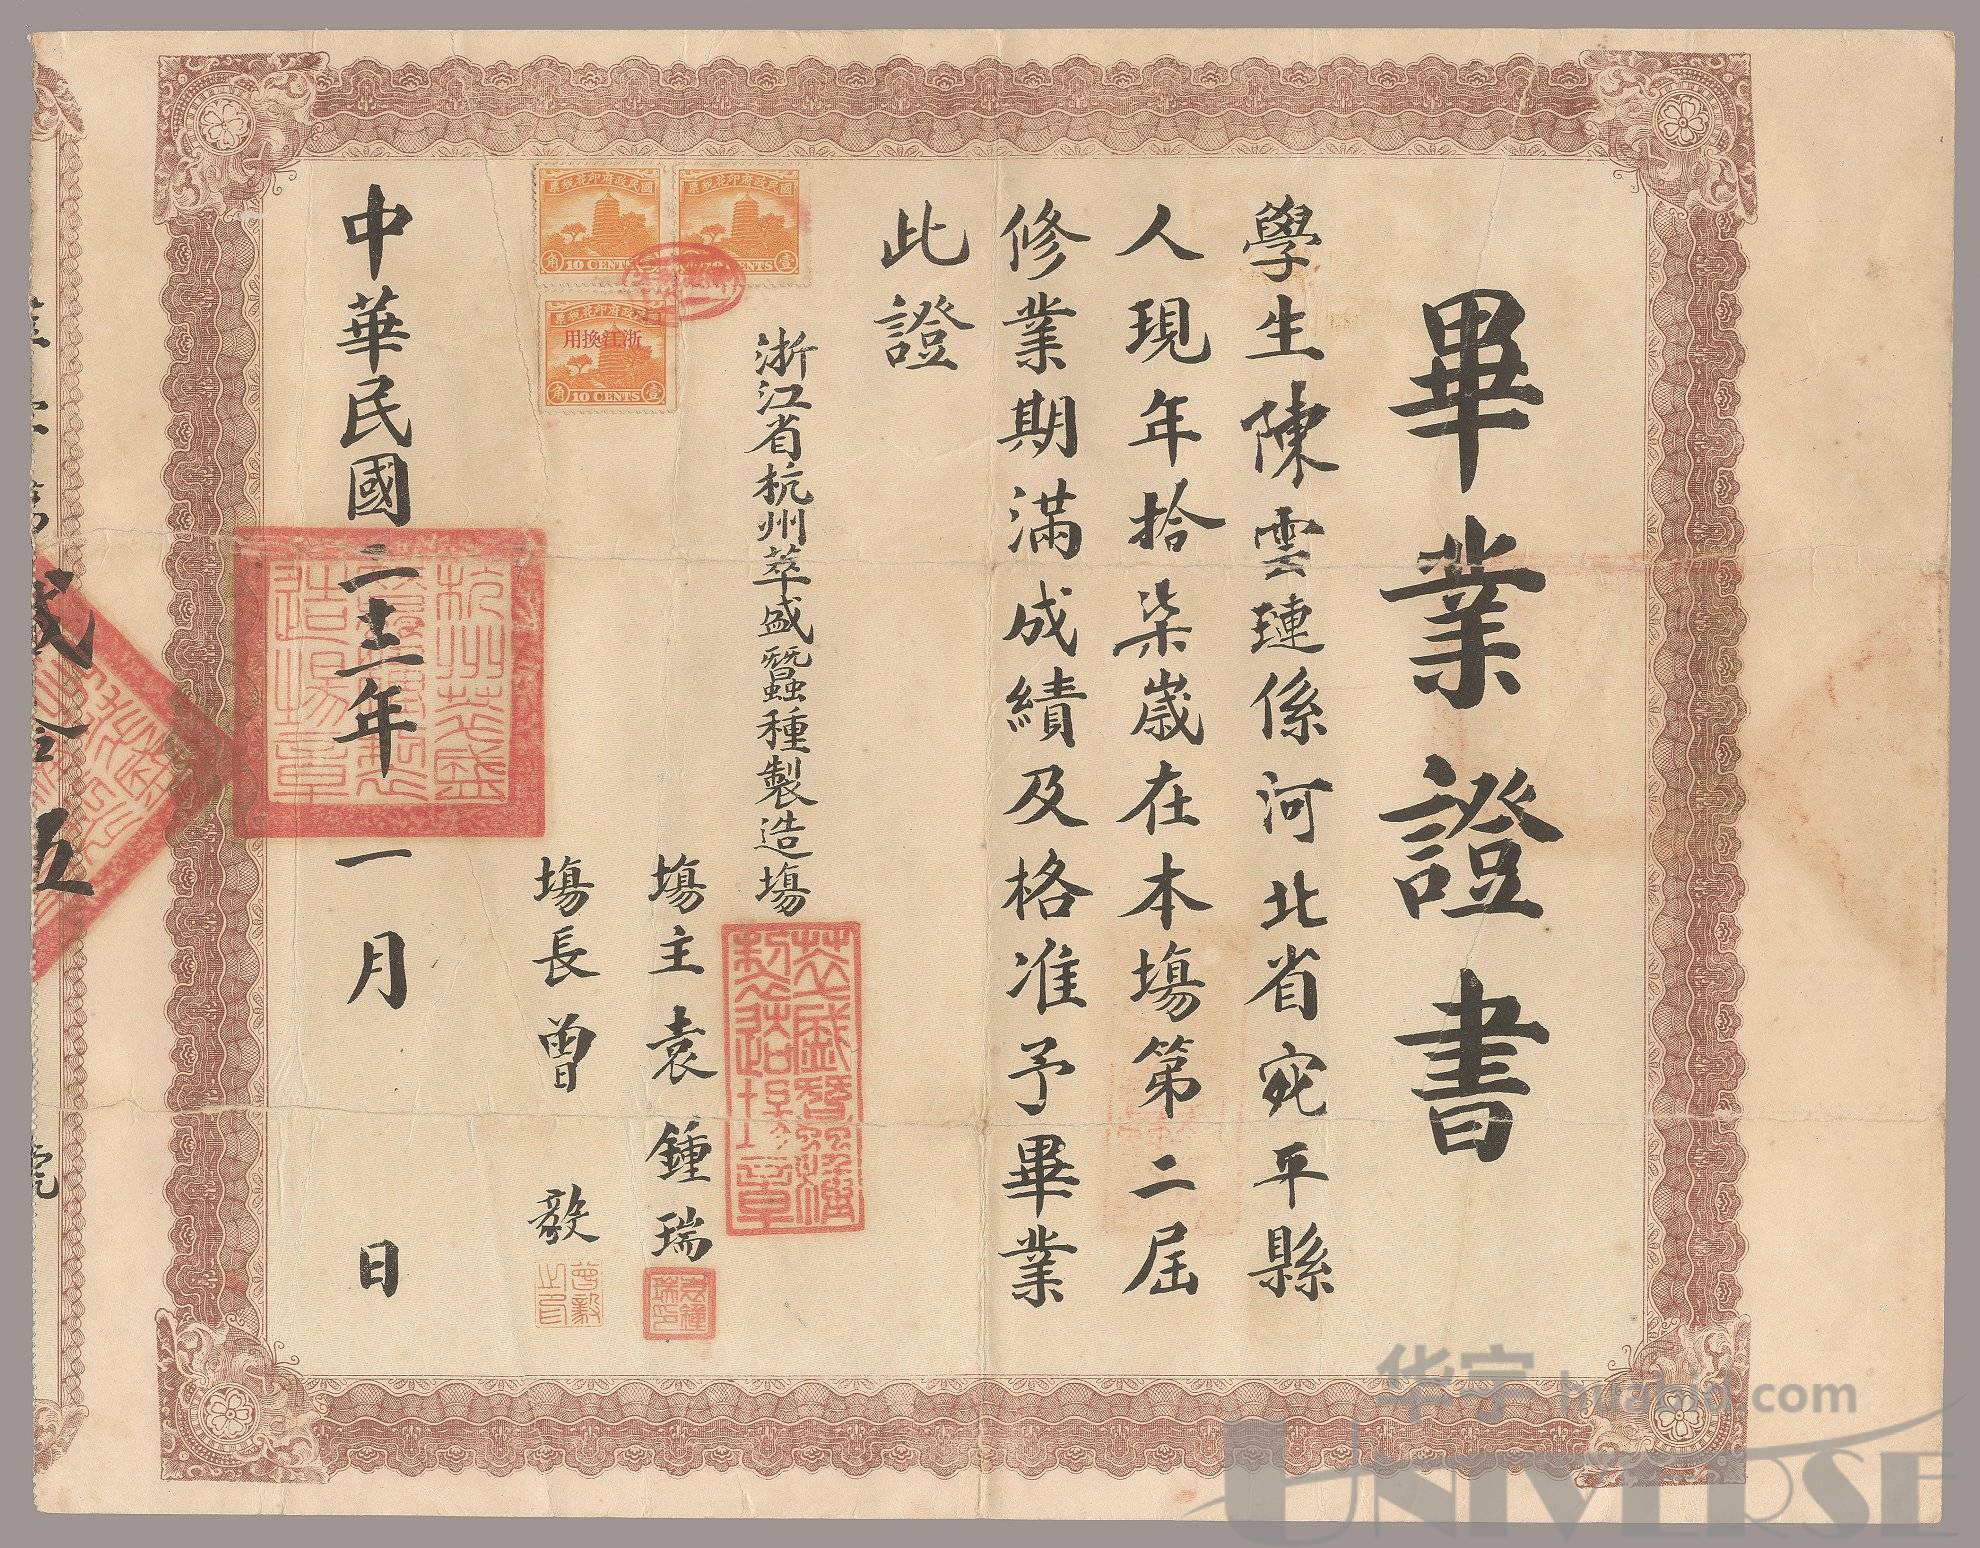 畢業證書
學生陳雲璉係河北省宛平縣
人現年拾柒歲在本場第二屆
修業期滿成績及格准予畢業
此證
國民政府印花稅票
角 10 CENTS 壹
國民政府印花稅票
10 CENTS 壹
國民政府印花稅票
浙江換用
角 10 CENTS 壹
浙江省杭州萃盛蠶種製造場
場主袁鍾瑞
袁鍾瑞印
場長曾毅
曾毅之印
中華民國二十二年一月 日
杭州萃盛蠶種製造場章
貳拾五號
华宇 huabid.com
UNIVERSE